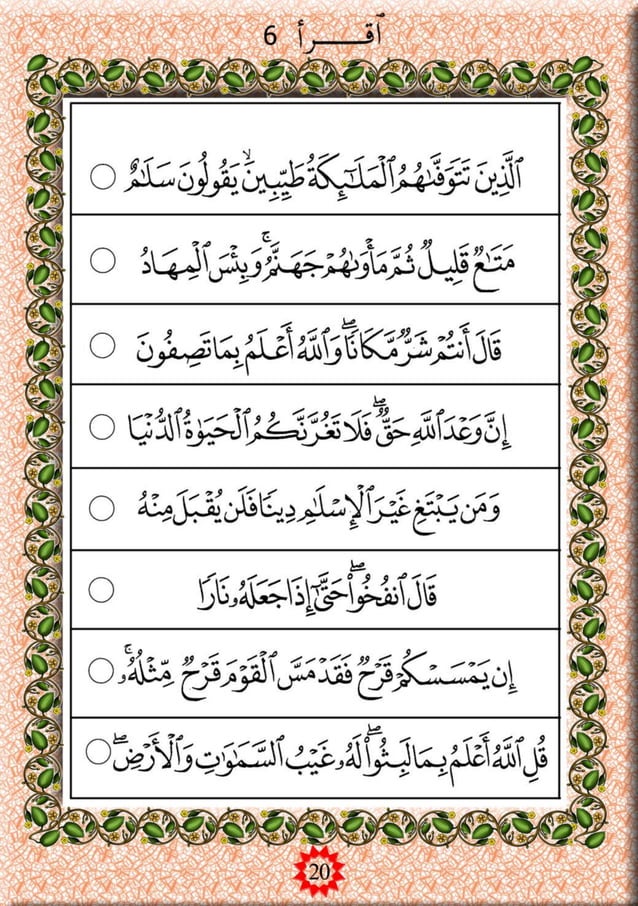 ٱقـــرأ 6
ٱلَّذِينَ تَتَوَفَّىٰهُمُ ٱلْمَلَـٰٓئِكَةُ طَيِّبِينَ ۙ يَقُولُونَ سَلَـٰمٌ
مَتَـٰعٌ قَلِيلٌ ثُمَّ مَأْوَىٰهُمْ جَهَنَّمُ ۚ وَبِئْسَ ٱلْمِهَادُ
قَالَ أَنتُمْ شَرٌّ مَّكَانًا ۖ وَٱللَّهُ أَعْلَمُ بِمَا تَصِفُونَ
إِنَّ وَعْدَ ٱللَّهِ حَقٌّ ۖ فَلَا تَغُرَّنَّكُمُ ٱلْحَيَوٰةُ ٱلدُّنْيَا
وَمَن يَبْتَغِ غَيْرَ ٱلْإِسْلَـٰمِ دِينًا فَلَن يُقْبَلَ مِنْهُ
قَالَ ٱنفُخُوا۟ ۖ حَتَّىٰٓ إِذَا جَعَلَهُۥ نَارًا
إِن يَمْسَسْكُمْ قَرْحٌ فَقَدْ مَسَّ ٱلْقَوْمَ قَرْحٌ مِّثْلُهُۥ ۚ
قُلِ ٱللَّهُ أَعْلَمُ بِمَا لَبِثُوا۟ ۖ لَهُۥ غَيْبُ ٱلسَّمَـٰوَٰتِ وَٱلْأَرْضِ ۖ
20